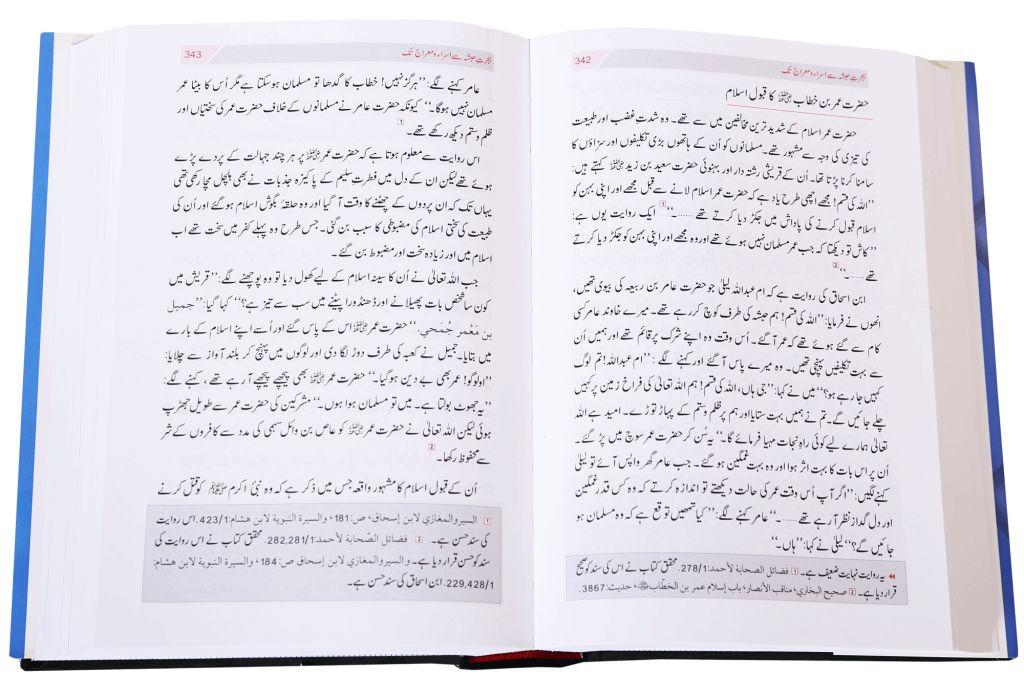 342
ہجرت حبشہ سے اسراء و معراج تک
حضرت عمر بن خطاب ﷜ کا قبول اسلام
حضرت عمر اسلام کے شدید ترین مخالفین میں سے تھے۔ وہ شدتِ غضب اور طبیعت
کی تیزی کی وجہ سے مشہور تھے۔ مسلمانوں کو اُن کے ہاتھوں بڑی تکلیفوں اور سزاؤں کا
سامنا کرنا پڑتا تھا۔ اُن کے قریشی رشتہ دار اور بہنوئی حضرت سعید بن زید ﷜ کہتے ہیں:
’’اللہ کی قسم! مجھے اچھی طرح یاد ہے کہ حضرت عمر اسلام لانے سے قبل مجھے اور اپنی بہن کو
اسلام قبول کرنے کی پاداش میں جکڑ دیا کرتے تھے ......۔‘‘ 1 ایک روایت یوں ہے:
’’کاش تو دیکھتا کہ جب عمر مسلمان نہیں ہوئے تھے اور وہ مجھے اور اپنی بہن کو جکڑ دیا کرتے
تھے ......۔‘‘ 2
ابن اسحاق کی روایت ہے کہ ام عبداللہ لیلیٰ جو حضرت عامر بن ربیعہ کی بیوی تھیں،
انھوں نے فرمایا: ’’اللہ کی قسم! ہم حبشہ کی طرف کوچ کر رہے تھے۔ میرے خاوند عامر کسی
کام سے گئے ہوئے تھے کہ عمر آگئے۔ اُس وقت وہ اپنے شرک پر قائم تھے اور ہمیں اُن
سے بہت تکلیفیں پہنچی تھیں۔ وہ میرے پاس آگئے اور کہنے لگے: ’’ام عبداللہ! تم لوگ
کہیں جا رہے ہو؟‘‘ میں نے کہا: ’’جی ہاں، اللہ کی قسم! ہم اللہ تعالیٰ کی فراخ زمین پر کہیں
چلے جائیں گے۔ تم نے ہمیں بہت ستایا اور ہم پر ظلم وستم کے پہاڑ توڑے۔ امید ہے اللہ
تعالیٰ ہمارے لیے کوئی راہِ نجات مہیا فرمائے گا۔‘‘ یہ سُن کر حضرت عمر سوچ میں پڑ گئے۔
اُن پر اس بات کا بہت اثر ہوا اور وہ بہت غمگین ہو گئے۔ جب عامر گھر واپس آئے تو لیلیٰ
کہنے لگیں: ’’اگر آپ اُس وقت عمر کی حالت دیکھتے تو اندازہ کرتے کہ وہ کس قدر غمگین
اور دل گداز نظر آ رہے تھے ......۔‘‘ عامر کہنے لگے: ’’کیا تمھیں توقع ہے کہ وہ مسلمان ہو
جائیں گے؟‘‘ لیلیٰ نے کہا: ’’ہاں۔‘‘
یہ روایت نہایت ضعیف ہے۔ 1 فضائل الصحابة لأحمد: 278/1. محقق کتاب نے اس کی سند کو صحیح
قرار دیا ہے۔ 2 صحيح البخاري، مناقب الأنصار، باب إسلام عمر بن الخطاب ﷜، حديث: 3867.
343
ہجرت حبشہ سے اسراء و معراج تک
عامر کہنے لگے: ’’ہرگز نہیں! خطاب کا گدھا تو مسلمان ہو سکتا ہے مگر اُس کا بیٹا عمر
مسلمان نہیں ہوگا۔‘‘ کیونکہ حضرت عامر نے مسلمانوں کے خلاف حضرت عمر کی سختیاں اور
ظلم وستم دیکھ رکھے تھے۔ 1
اس روایت سے معلوم ہوتا ہے کہ حضرت عمر ﷜ پر ہر چند جہالت کے پردے پڑے
ہوئے تھے لیکن ان کے دل میں فطرتِ سلیم کے پاکیزہ جذبات نے بھی ہلچل مچا رکھی تھی
یہاں تک کہ ان پردوں کے چھٹنے کا وقت آ گیا اور وہ حلقۂ بگوش اسلام ہو گئے اور اُن کی
طبیعت کی سختی اسلام کی مضبوطی کا سبب بن گئی۔ جس طرح وہ پہلے کفر میں سخت تھے اب
اسلام میں اور زیادہ سخت اور مضبوط بن گئے۔
جب اللہ تعالیٰ نے اُن کا سینہ اسلام کے لیے کھول دیا تو وہ پوچھنے لگے: ’’قریش میں
کون سا شخص بات پھیلانے اور ڈھنڈورا پیٹنے میں سب سے تیز ہے؟‘‘ کہا گیا: ’’جميل
بن مَعْمر جُمَحي.‘‘ حضرت عمر ﷜ اس کے پاس گئے اور اُسے اپنے اسلام کے بارے
میں بتایا۔ جمیل نے کعبہ کی طرف دوڑ لگا دی اور لوگوں میں پہنچ کر بلند آواز سے چلایا:
’’اولوگو! عمر بھی بے دین ہو گیا۔‘‘ حضرت عمر ﷜ بھی پیچھے پیچھے آ رہے تھے، کہنے لگے:
’’یہ جھوٹ بولتا ہے۔ میں تو مسلمان ہوا ہوں۔‘‘ مشرکین کی حضرت عمر سے طویل جھڑپ
ہوئی لیکن اللہ تعالیٰ نے حضرت عمر ﷜ کو عاص بن وائل سہمی کی مدد سے کافروں کے شر
سے محفوظ رکھا۔ 2
اُن کے قبول اسلام کا مشہور واقعہ جس میں ذکر ہے کہ وہ نبیٔ اکرم ﷺ کو قتل کرنے
1 السير والمغازي لابن إسحاق، ص: 181، والسيرة النبوية لابن هشام: 423/1. اس روایت
کی سند حسن ہے۔ 2 فضائل الصحابة لأحمد: 282,281/1. محقق کتاب نے اس روایت کی
سند کو حسن قرار دیا ہے۔ والسير والمغازي لابن إسحاق ص: 184، والسيرة النبوية لابن هشام:
229,428/1. ابن اسحاق کی سند حسن ہے۔